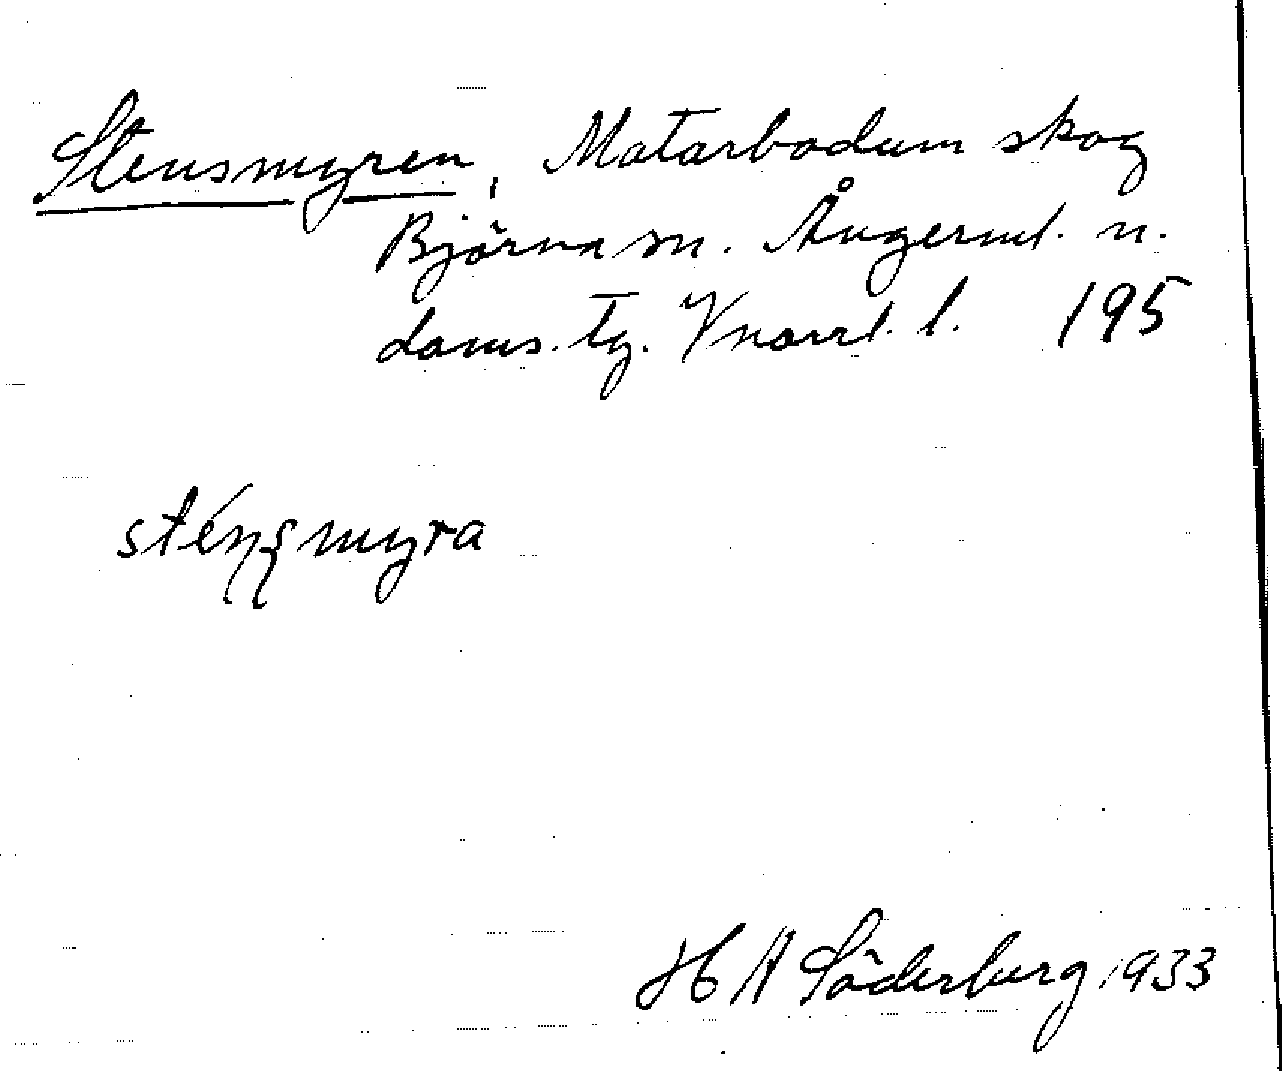 Stensmyren, Matarbodum skog
Björna sn. Ångerml. n.
doms. tg. Vnorrl. l. 195
sténsmyra
H A Söderberg 1933